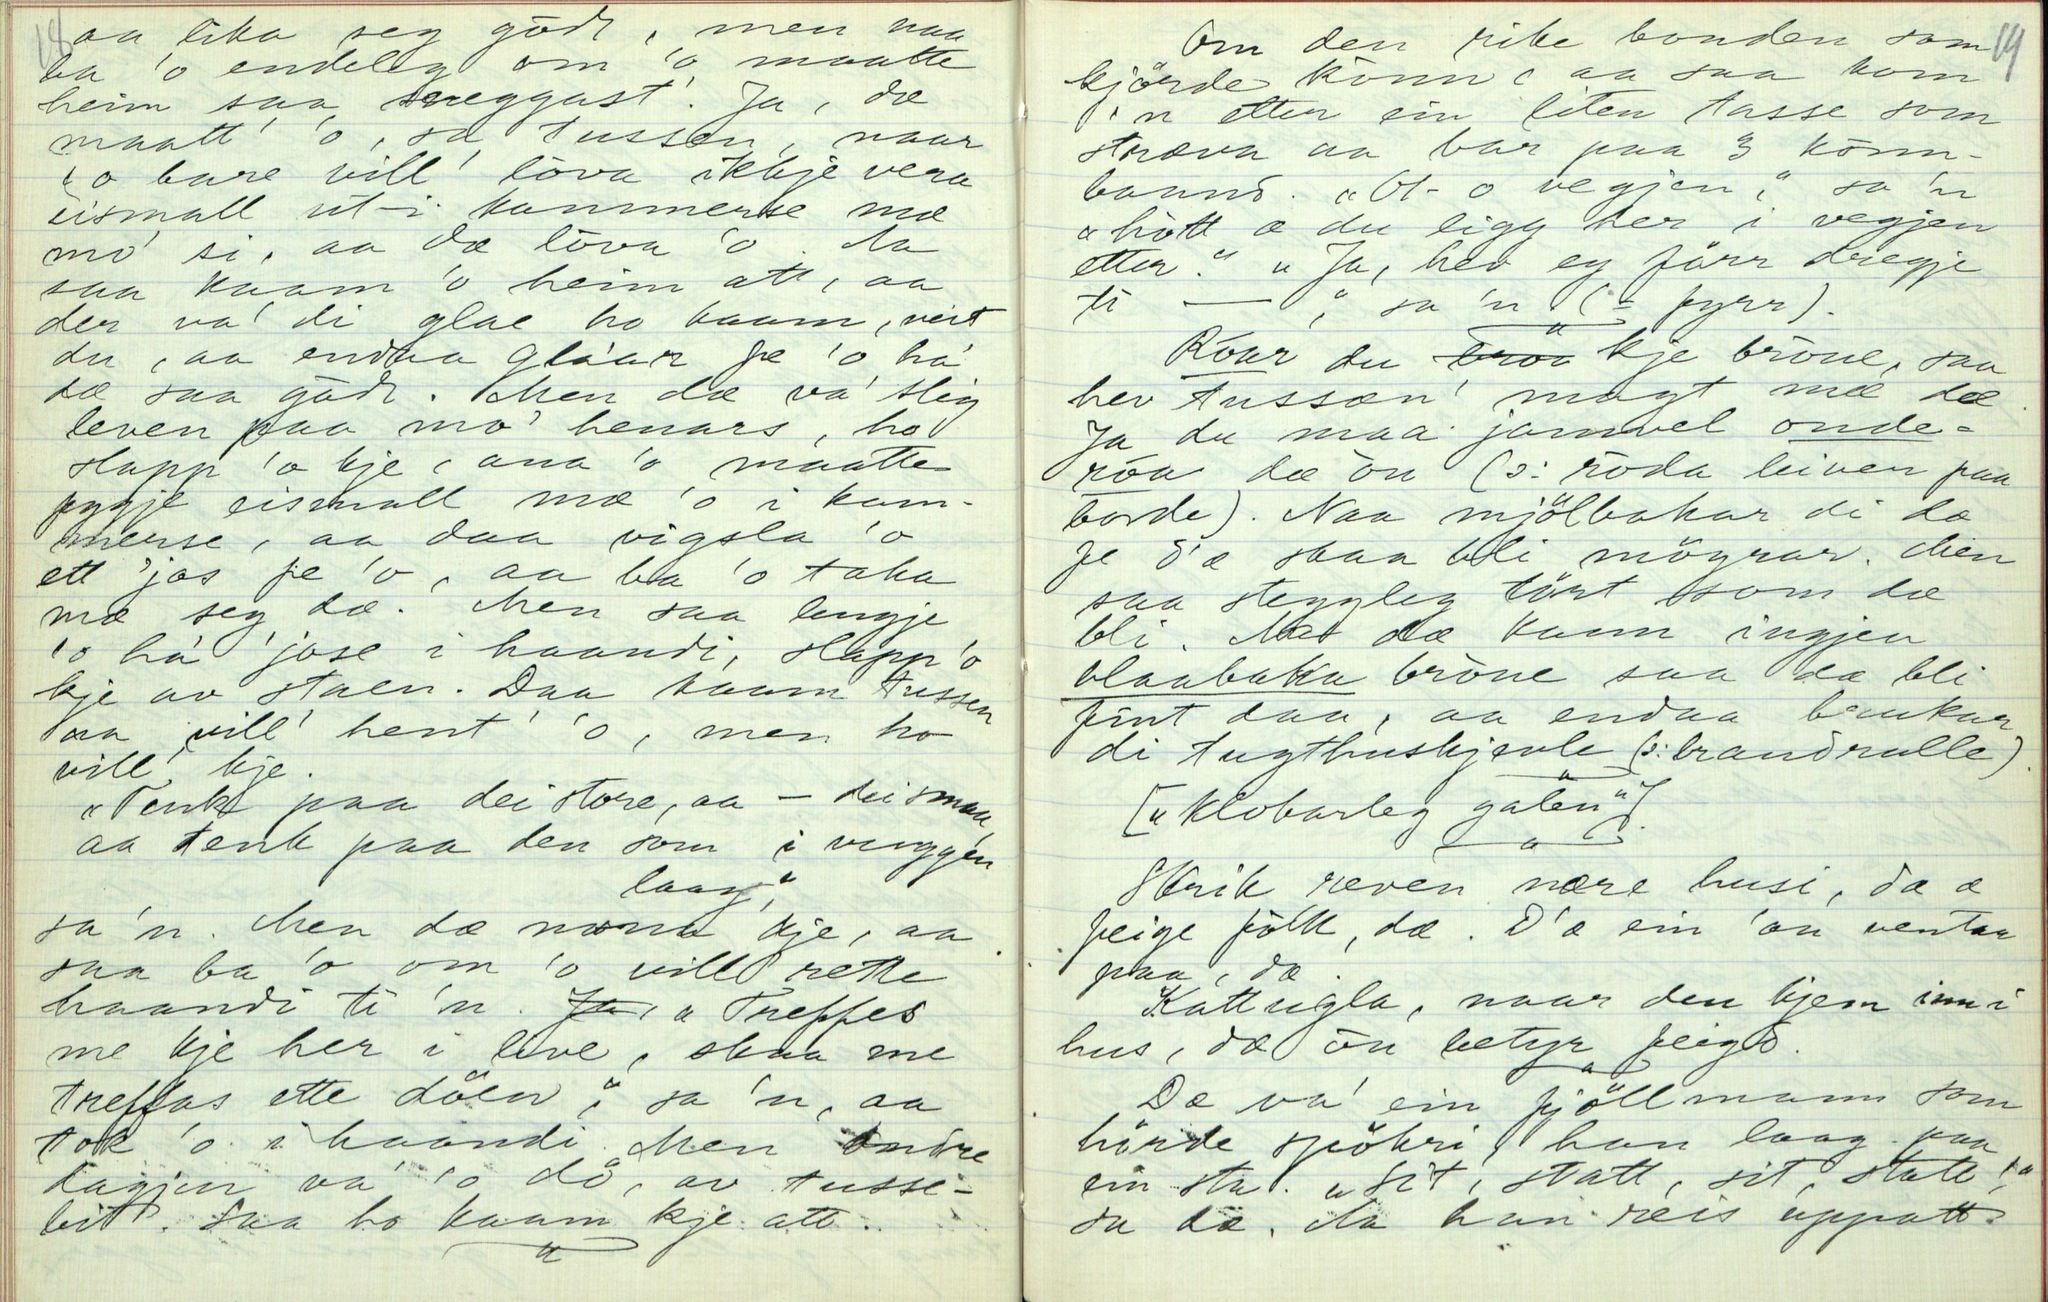 18
aa lika seg gödt, men naa
ba 'o endeleg om 'o maatte
heim saa sneggast'. Ja, dæ
maatt' 'o, sa tussen, naar
'o bare vill' lova ikkje vera
eismall ut-i kammerse mæ
mo' si, aa dæ lova 'o. Aa
saa kaam 'o heim att, aa
der va' di glae ho kaam, veit
du, aa endaa gla'ar fe 'o ha'
dæ saa gödt. Men dæ va' slig
leven paa mo' henars, ho
slapp 'o kje, ana 'o maatte
fygje eismall mæ 'o i kam-
merse, aa daa vigsla 'o
ett 'jos fe 'o, aa ba 'o taka
mæ seg dæ. Men saa lengje
'o ha' 'jose i haandi, slapp 'o
kje av staen. Daa kaam tussen
aa vill' hent' 'o, men ho
vill' kje.
"Tenk paa dei store, aa – dei smaa
aa tenk paa den som i vuggen
laag,"
sa 'n. Men dæ kje, aa
saa ba 'o om 'o vill' rette
haandi ti 'n. Ja, "Treffes
me kje her i live, skaa me
treffas ette döen," sa 'n, aa
tok 'o i haandi. Men andre
dagjen va' 'o dö, av tusse-
bit. Saa ho kaam kje att.
19
Om den rike bonden som
kjörde könn, aa saa kom
'n etter ein liten tusse som
stræva aa bar paa 3 könn-
band. "Ut- o vegjen," sa 'n
"hött æ du ligg her i vegjen
etter." "Ja, hev eg förr dregje
ti —," sa 'n (= fyrr).
Roar du kje bröne, saa
hev tussæn' magt mæ dæ
Ja du maa jamvel onde-
roa dæ ön (ɔ: röda leiven paa
borde). Naa mjölbakar di dæ
fe d'æ skaa bli mögrar. Men
saa steggleg tört som dæ
bli. Naa dæ kaam ingjen
vlaabaka bröne saa dæ bli
fint daa, aa endaa brukar
di tugthuskjevle (ɔ: brandrulle).
["klobarleg galen"].
Skrik ræven nære husi, dæ æ
feige fölk, dæ. D'æ ein 'an ventaa
paa, dæ.
Kattugla, naar den kjem inn i
hus, dæ ön betyr feigd.
Dæ va' ein fjöllmann som
hörde spökri, han laag paa
ein sta. "Sit, statt, sit, statt!"
sa dæ. Aa han reis uppatt